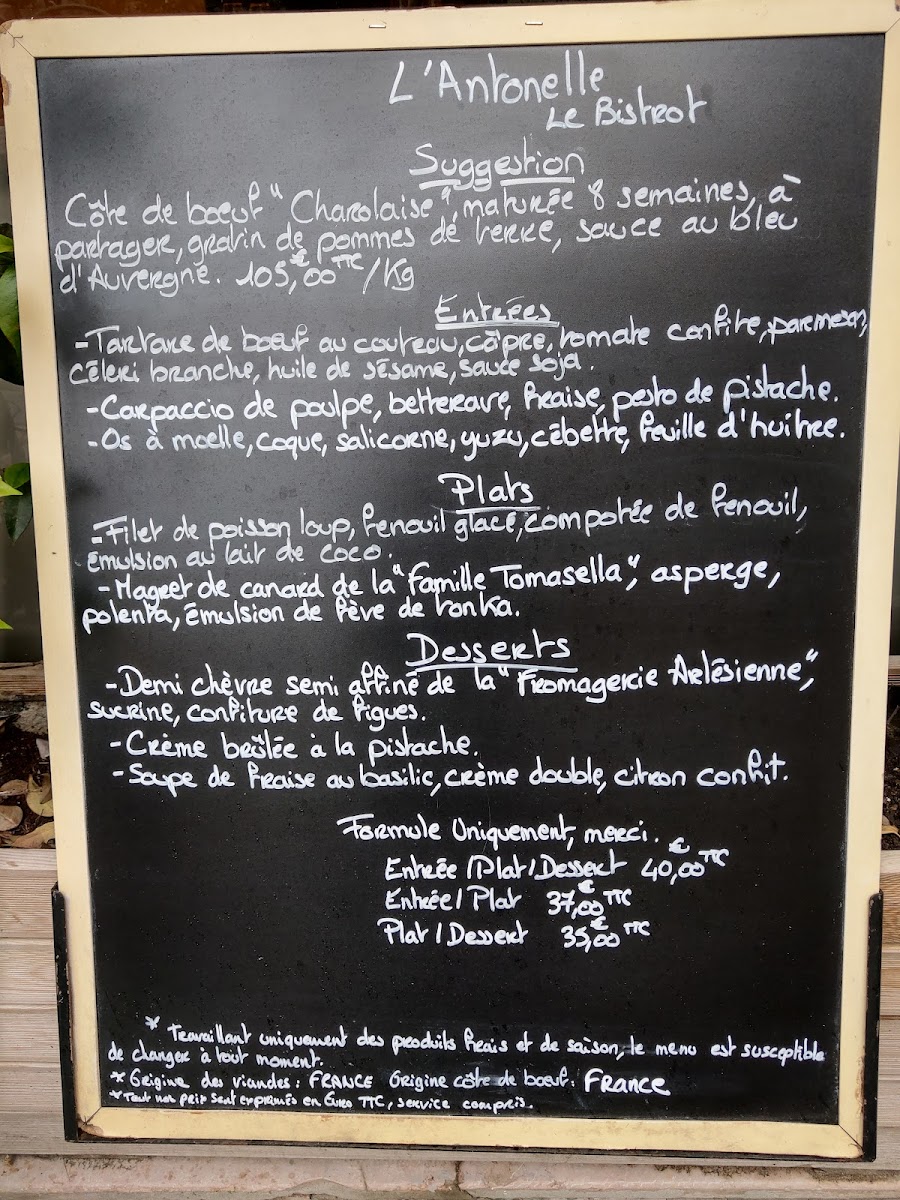 L'Antonelle
Le Bistrot
Suggestion
Côte de bœuf "Charolaise", maturée 8 semaines, à
partager, gratin de pommes de terre, sauce au bleu
d'Auvergne. 105,00€ TTC/Kg
Entrées
-Tartare de bœuf au couteau, câpre, tomate confite, parmesan,
céleri branche, huile de sésame, sauce soja.
-Carpaccio de poulpe, betterave, fraise, pesto de pistache.
-Os à moelle, coque, salicorne, yuzu, cébette, feuille d'huitre.
Plats
-Filet de poisson loup, fenouil glacé, compotée de fenouil,
émulsion au lait de coco.
-Magret de canard de la "Famille Tomasella", asperge,
polenta, émulsion de fève de tonka.
Desserts
-Demi chèvre semi affiné de la "Fromagerie Arlésienne",
sucrine, confiture de figues.
-Crème brûlée à la pistache.
-Soupe de fraise au basilic, crème double, citron confit.
Formule Uniquement, merci.
Entrée/Plat/Dessert 40,00€ TTC
Entrée/Plat 37,00€ TTC
Plat/Dessert 35,00€ TTC
* Travaillant uniquement des produits frais et de saison, le menu est susceptible
de changer à tout moment.
* Origine des viandes: FRANCE Origine côte de bœuf: France
* Tout nos prix sont exprimés en Euro TTC, service compris.